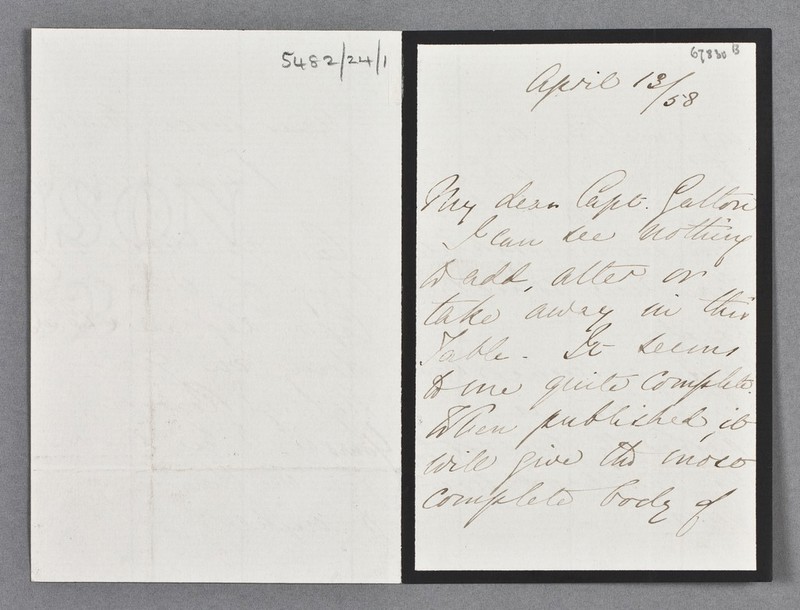 5482/24/1
67830 B
April 13/58
My dear Capt. Galton
I can see nothing
to add, alter or
take away in this
Table. It seems
to me quite complete.
When published, it
will give the most
complete body of